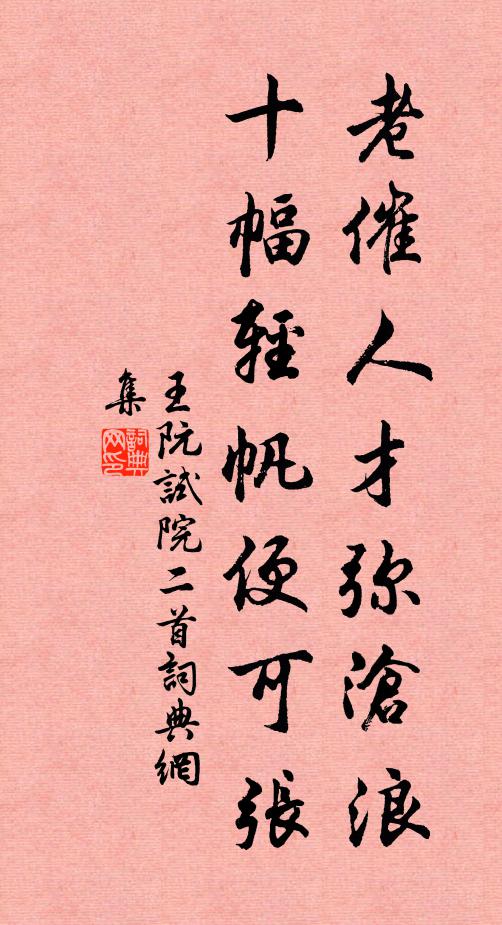 老催人才弥滄浪
十幅輕帆便可張
王阮試院二首詞典網
集
詞典
网印